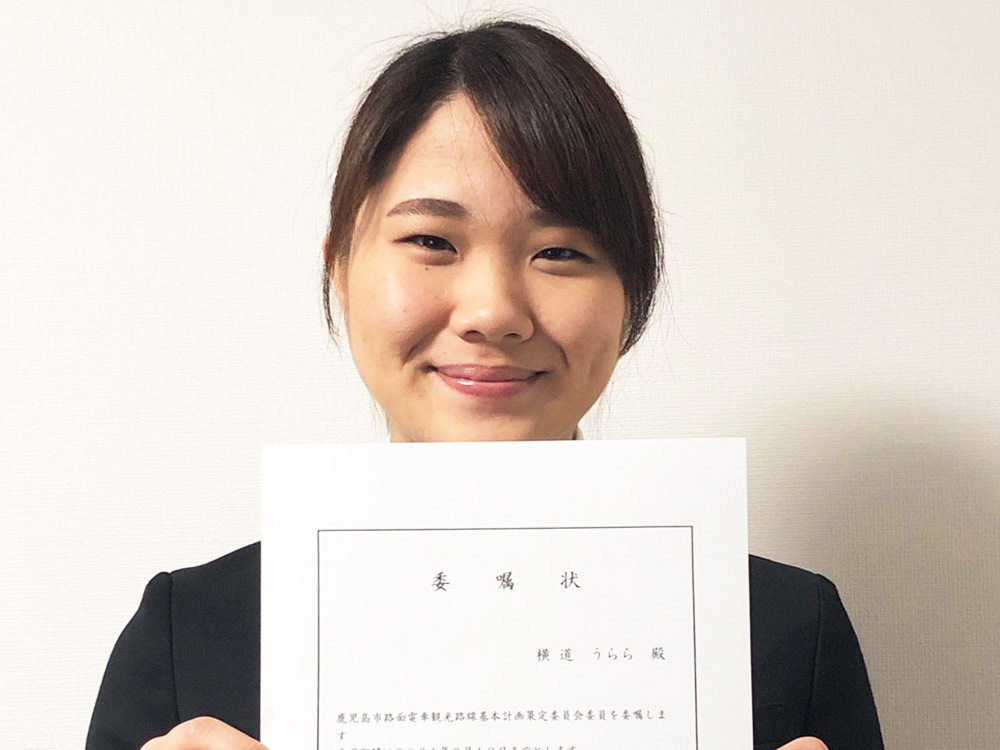 委嘱状
横道 うらら 殿
鹿児島市路面電車観光路線基本計画策定委員会委員を委嘱しま
す